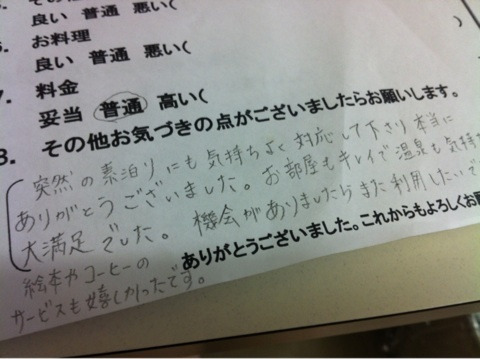 良い 普通 悪い(
お料理
良い 普通 悪い(
7. 料金
妥当 普通 高い( )
8. その他お気づきの点がございましたらお願いします。
突然の素泊りにも気持ちよく対応して下さり本当に
ありがとうございました。お部屋もキレイで温泉も気持ち
大満足でした。機会がありましたらまた利用したいで
絵本やコーヒーの
サービスも嬉しかったです。
ありがとうございました。これからもよろしくお願